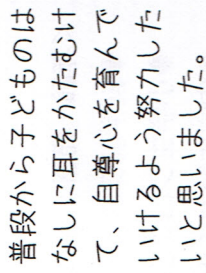 普段から子どものは
なしに耳をかたむけ
て、自尊心を育んで
いけるよう努力した
いと思いました。